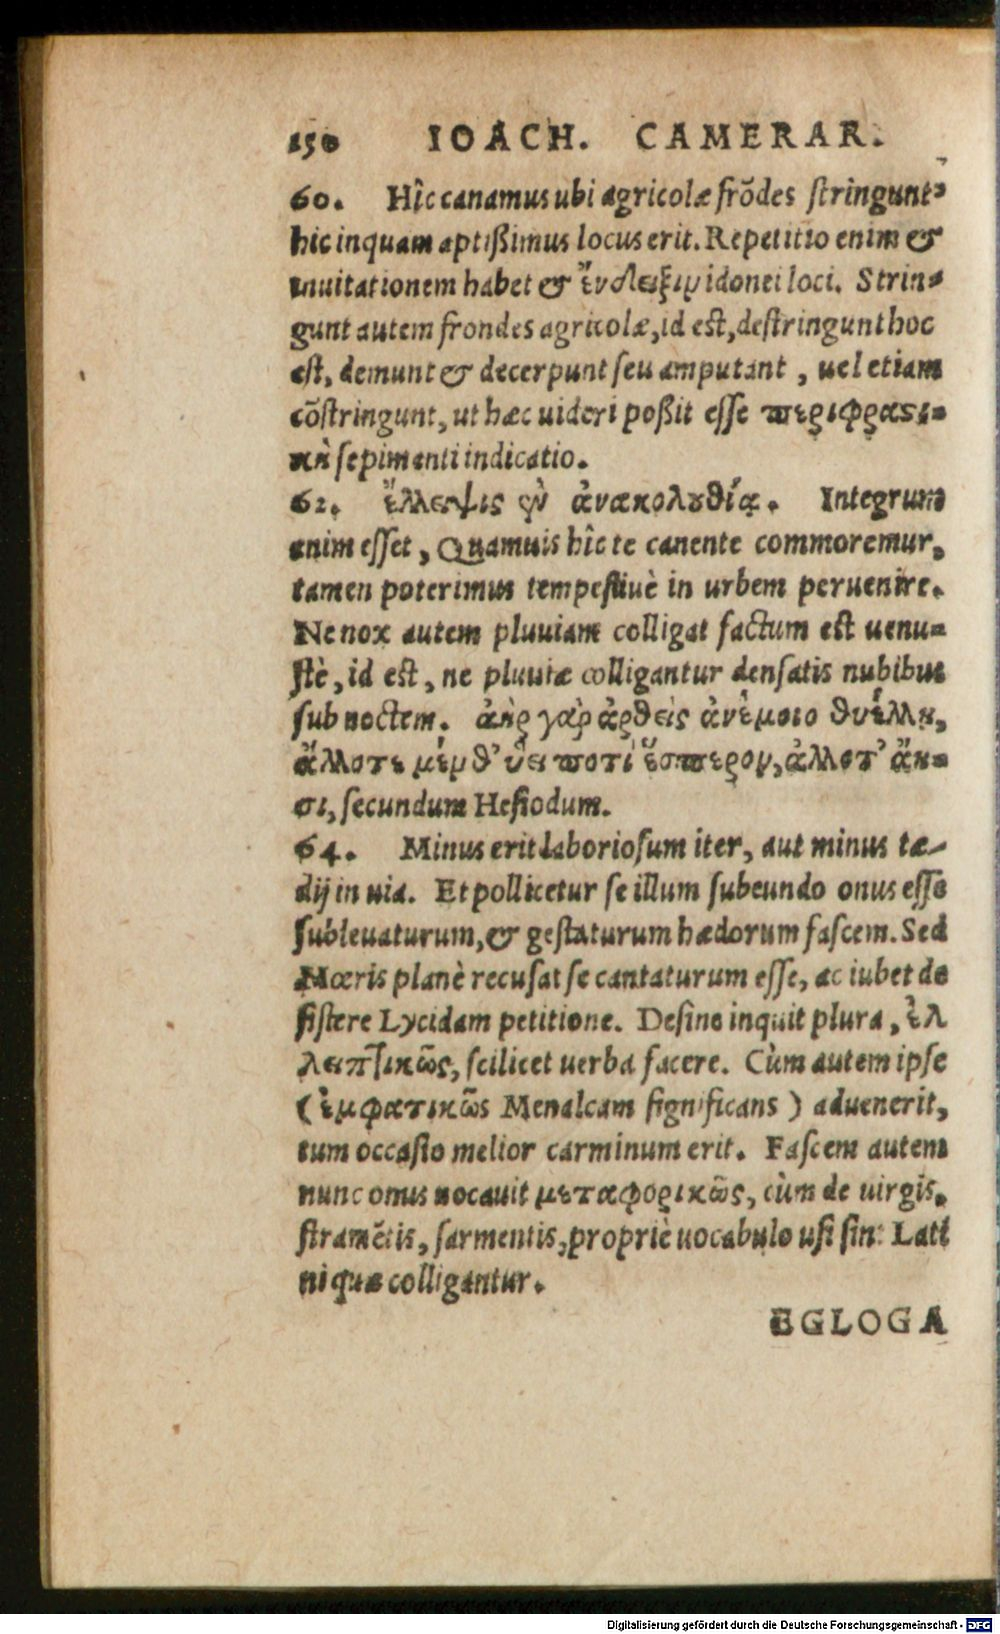 150 IOACH. CAMERAR.
60. Hîc canamus ubi agricolæ frõdes stringunt-
hic inquam aptißimus locus erit. Repetitio enim &
inuitationem habet & ἔνδειξιν idonei loci. Strin-
gunt autem frondes agricolæ, id est, destringunt hoc
est, demunt & decerpunt seu amputant, uel etiam
cõstringunt, ut hæc uideri poßit esse περιφραστι-
κὴ sepimenti indicatio.
62. ἔλλειψις ἐν ἀνακολουθίᾳ. Integrum
enim esset, Quamuis hîc te canente commoremur,
tamen poterimus tempestiuè in urbem peruenire.
Ne nox autem pluuiam colligat factum est uenu-
stè, id est, ne pluuiæ colligantur densatis nubibus
sub noctem. ἀὴρ γὰρ ἀρθεὶς ἀνέμοιο θυέλλῃ,
ἄλλοτε μέν θ' ὕει ποτὶ ἕσπερον, ἀλλοτ' ἄη-
σι, secundum Hesiodum.
64. Minus erit laboriosum iter, aut minus tæ-
dij in uia. Et pollicetur se illum subeundo onus esse
subleuaturum, & gestaturum hædorum fascem. Sed
Mœris planè recusat se cantaturum esse, ac iubet de
sistere Lycidam petitione. Desine inquit plura, ἐλ
λειπτικῶς, scilicet uerba facere. Cùm autem ipse
(ἐμφατικῶς Menalcam significans) aduenerit,
tum occasio melior carminum erit. Fascem autem
nunc onus uocauit μεταφορικῶς, cùm de uirgis,
stramẽtis, sarmentis, propriè uocabulo usi sint Lati
ni quæ colligantur.
EGLOGA
Digitalisierung gefördert durch die Deutsche Forschungsgemeinschaft - DFG